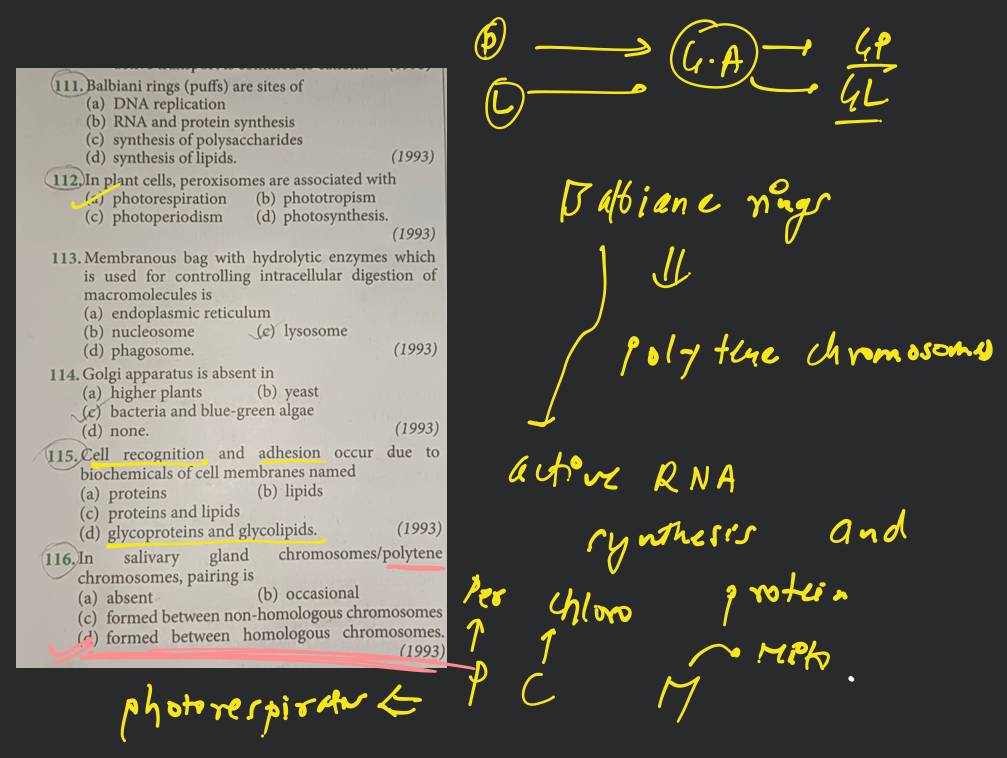 111. Balbiani rings (puffs) are sites of
(a) DNA replication
(b) RNA and protein synthesis
(c) synthesis of polysaccharides
(d) synthesis of lipids. (1993)
112. In plant cells, peroxisomes are associated with
(a) photorespiration (b) phototropism
(c) photoperiodism (d) photosynthesis.
(1993)
113. Membranous bag with hydrolytic enzymes which
is used for controlling intracellular digestion of
macromolecules is
(a) endoplasmic reticulum
(b) nucleosome (c) lysosome
(d) phagosome. (1993)
114. Golgi apparatus is absent in
(a) higher plants (b) yeast
(c) bacteria and blue-green algae
(d) none. (1993)
115. Cell recognition and adhesion occur due to
biochemicals of cell membranes named
(a) proteins (b) lipids
(c) proteins and lipids
(d) glycoproteins and glycolipids. (1993)
116. In salivary gland chromosomes/polytene
chromosomes, pairing is
(a) absent (b) occasional
(c) formed between non-homologous chromosomes
(d) formed between homologous chromosomes.
(1993)
P G.A GP
L GL
Balbiane rings
polytene chromosomes
active RNA
synthesis and
protein
Per Chloro
P C M Mito
photorespirator